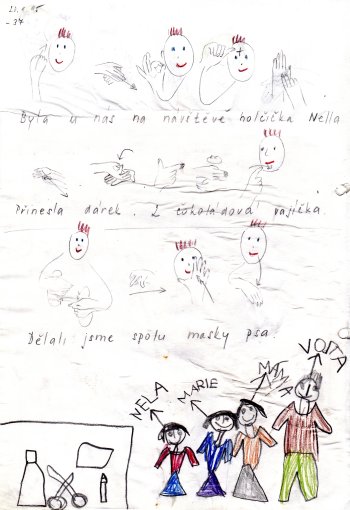 - 37
Byla u nás na návštěvě holčička Nella
Přinesla dárek. 2 čokoládová vajíčka.
Dělali jsme spolu masky psa.
NELA
MARIE
MAMA
VOJTA